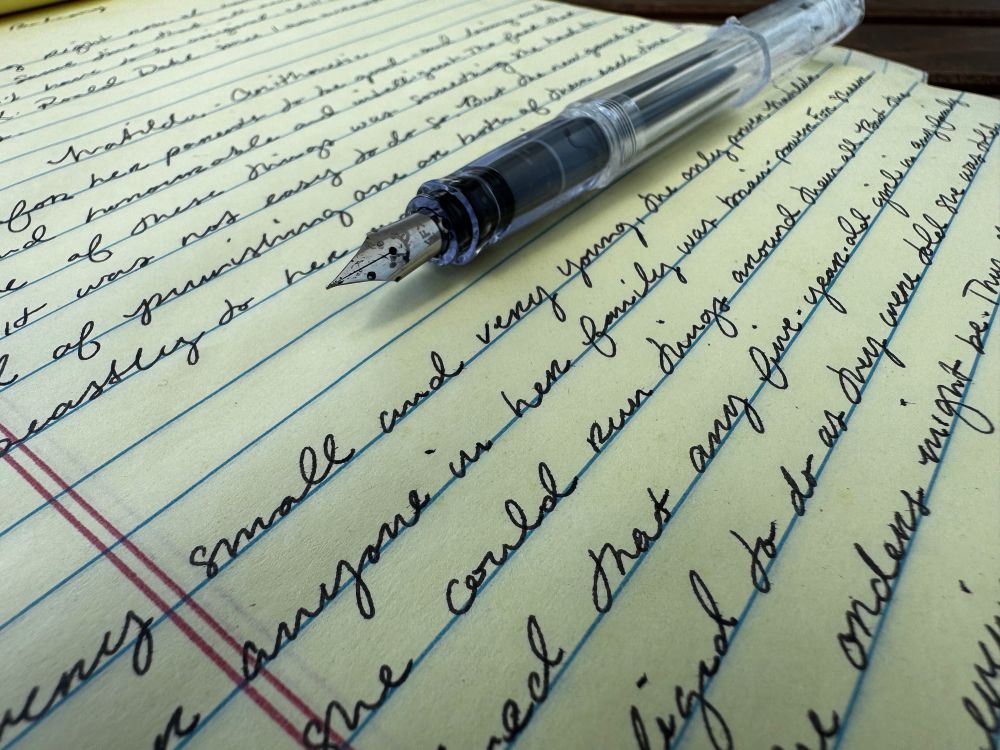 right now
same time that
have to be
Roald Dahl
Matilda. Arithmetic
for her parents to be good and loving and
nd honourable and intelligent. The fact that
e of these things was something she had to
It was not easy to do so. But the new game she
d of punishing one or both of them each time
beastly to her
very small and very young, the only power Matilda
anyone in her family was brain power. For sheer
she could run things around them all. But the
ned that any five-year-old girl in any family
liged to do as they were told she was told
he orders might be. Thus